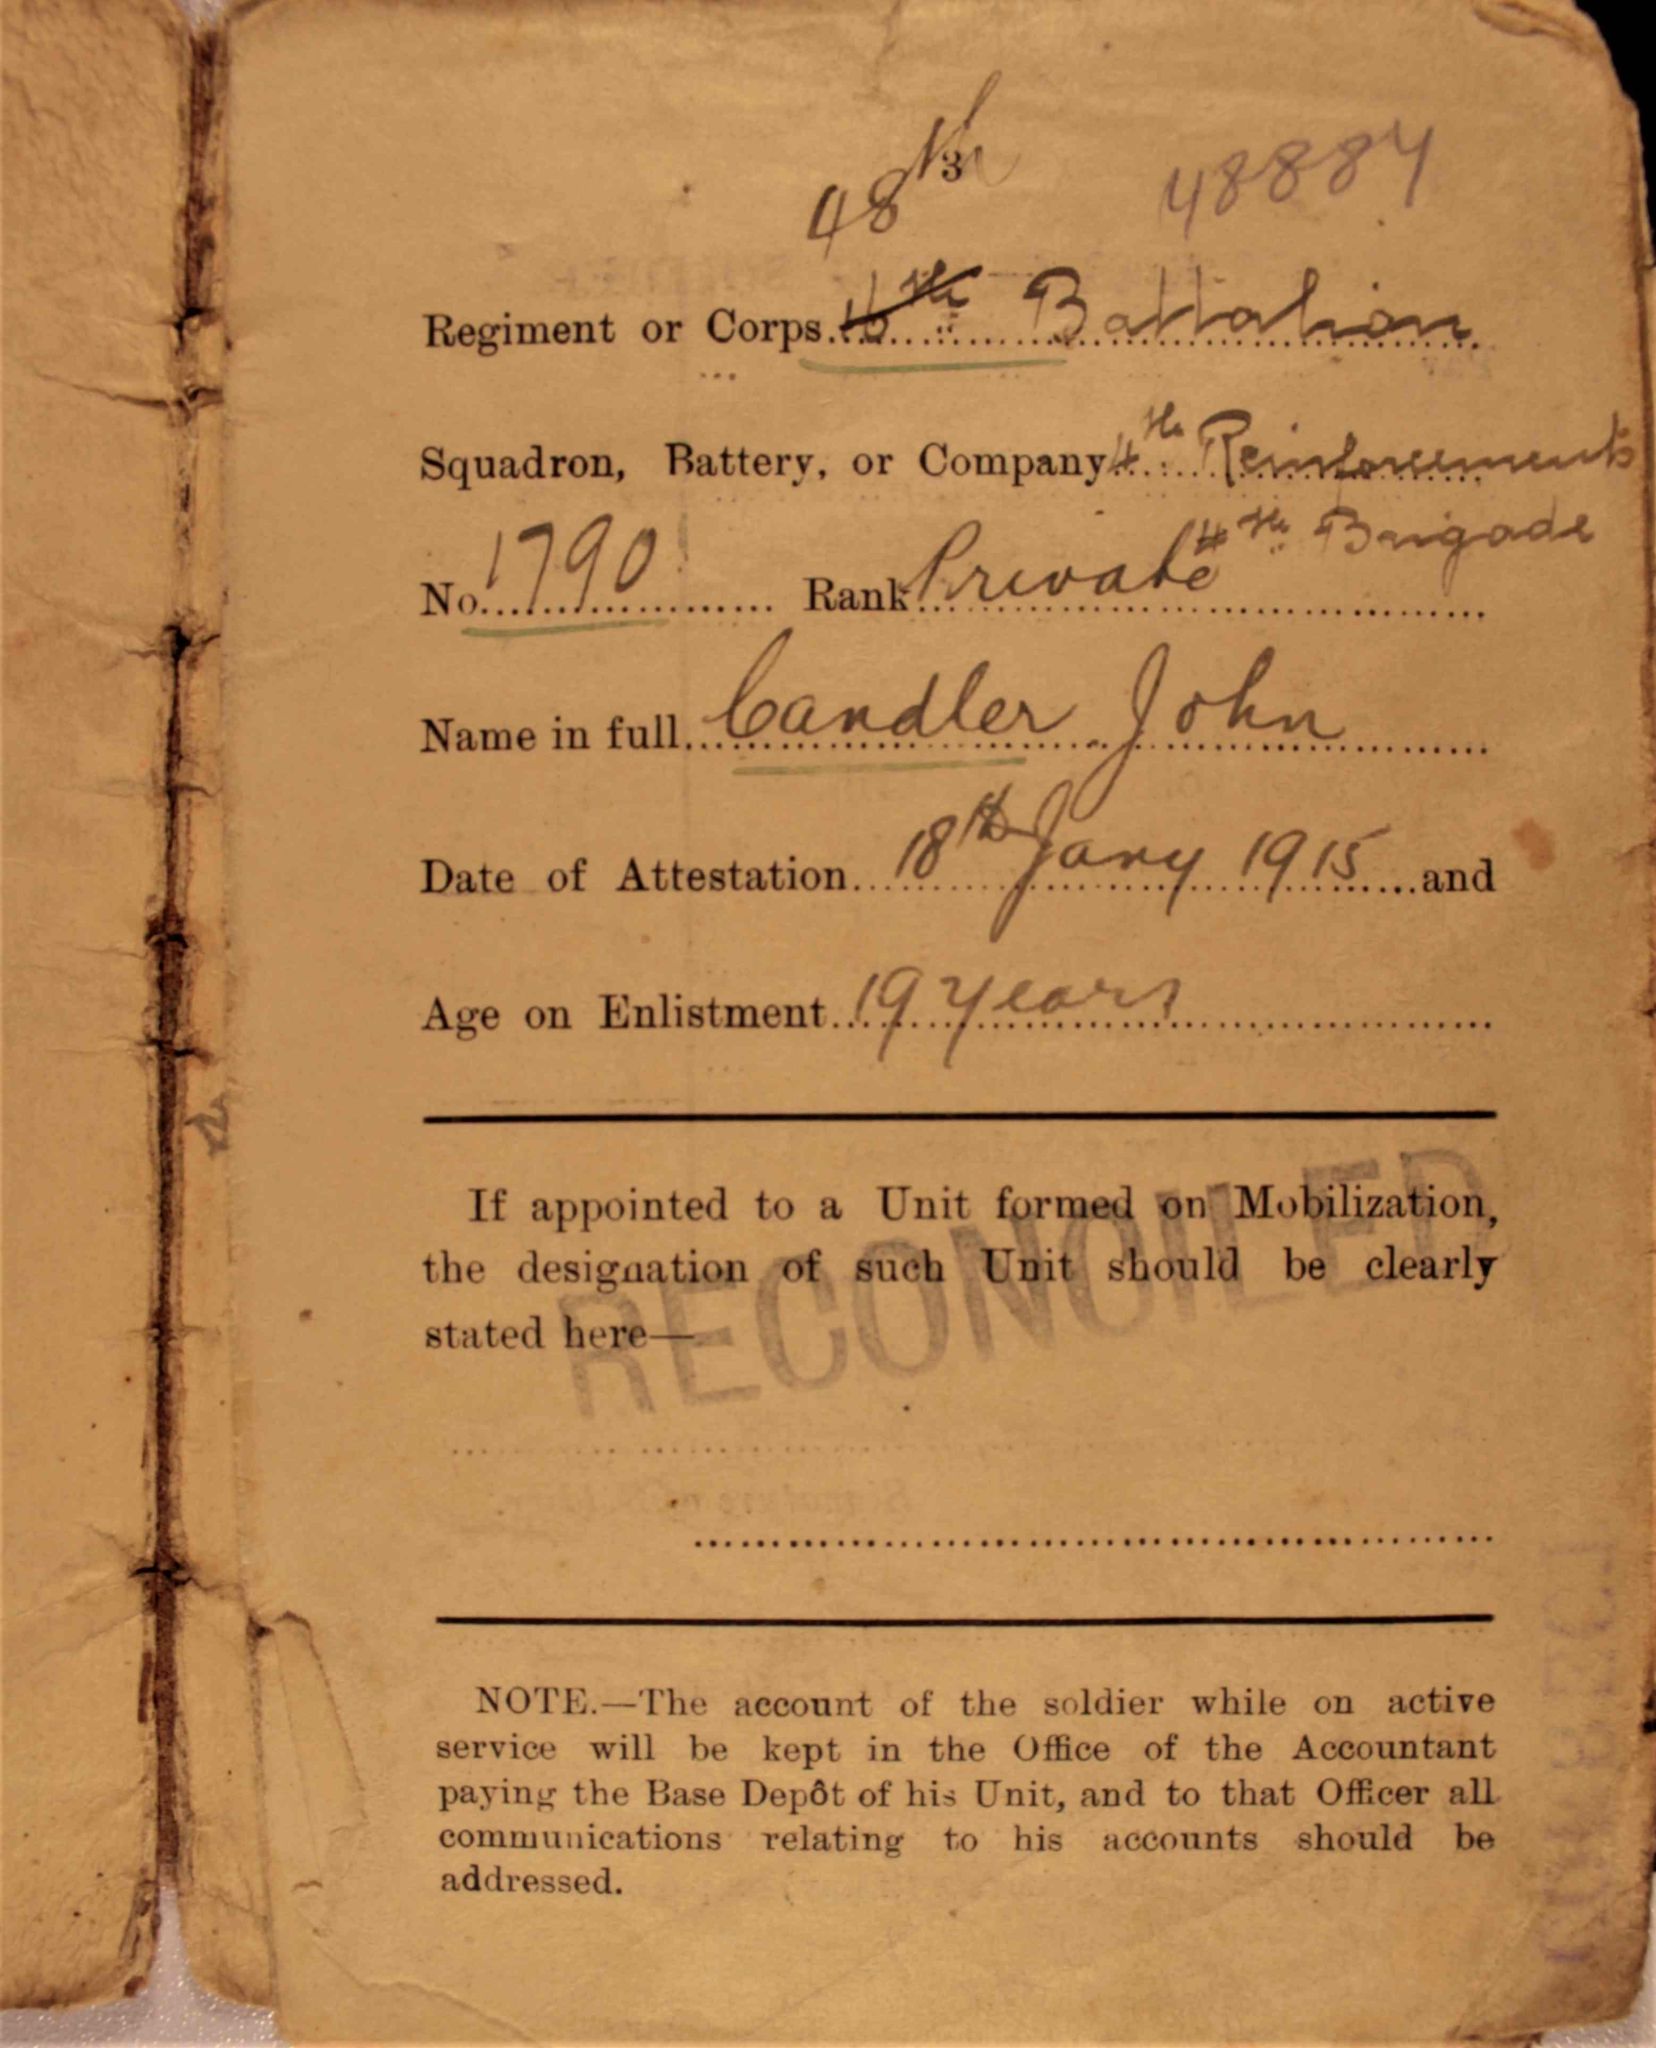 3
48th 48884
Regiment or Corps 16th Battalion
Squadron, Battery, or Company 4th Reinforcements
4th Brigade
No. 1790 Rank Private
Name in full Candler John
Date of Attestation 18th Jany 1915 and
Age on Enlistment 19 years
If appointed to a Unit formed on Mobilization,
the designation of such Unit should be clearly
stated here—
RECONCILED
NOTE.—The account of the soldier while on active
service will be kept in the Office of the Accountant
paying the Base Depôt of his Unit, and to that Officer all
communications relating to his accounts should be
addressed.